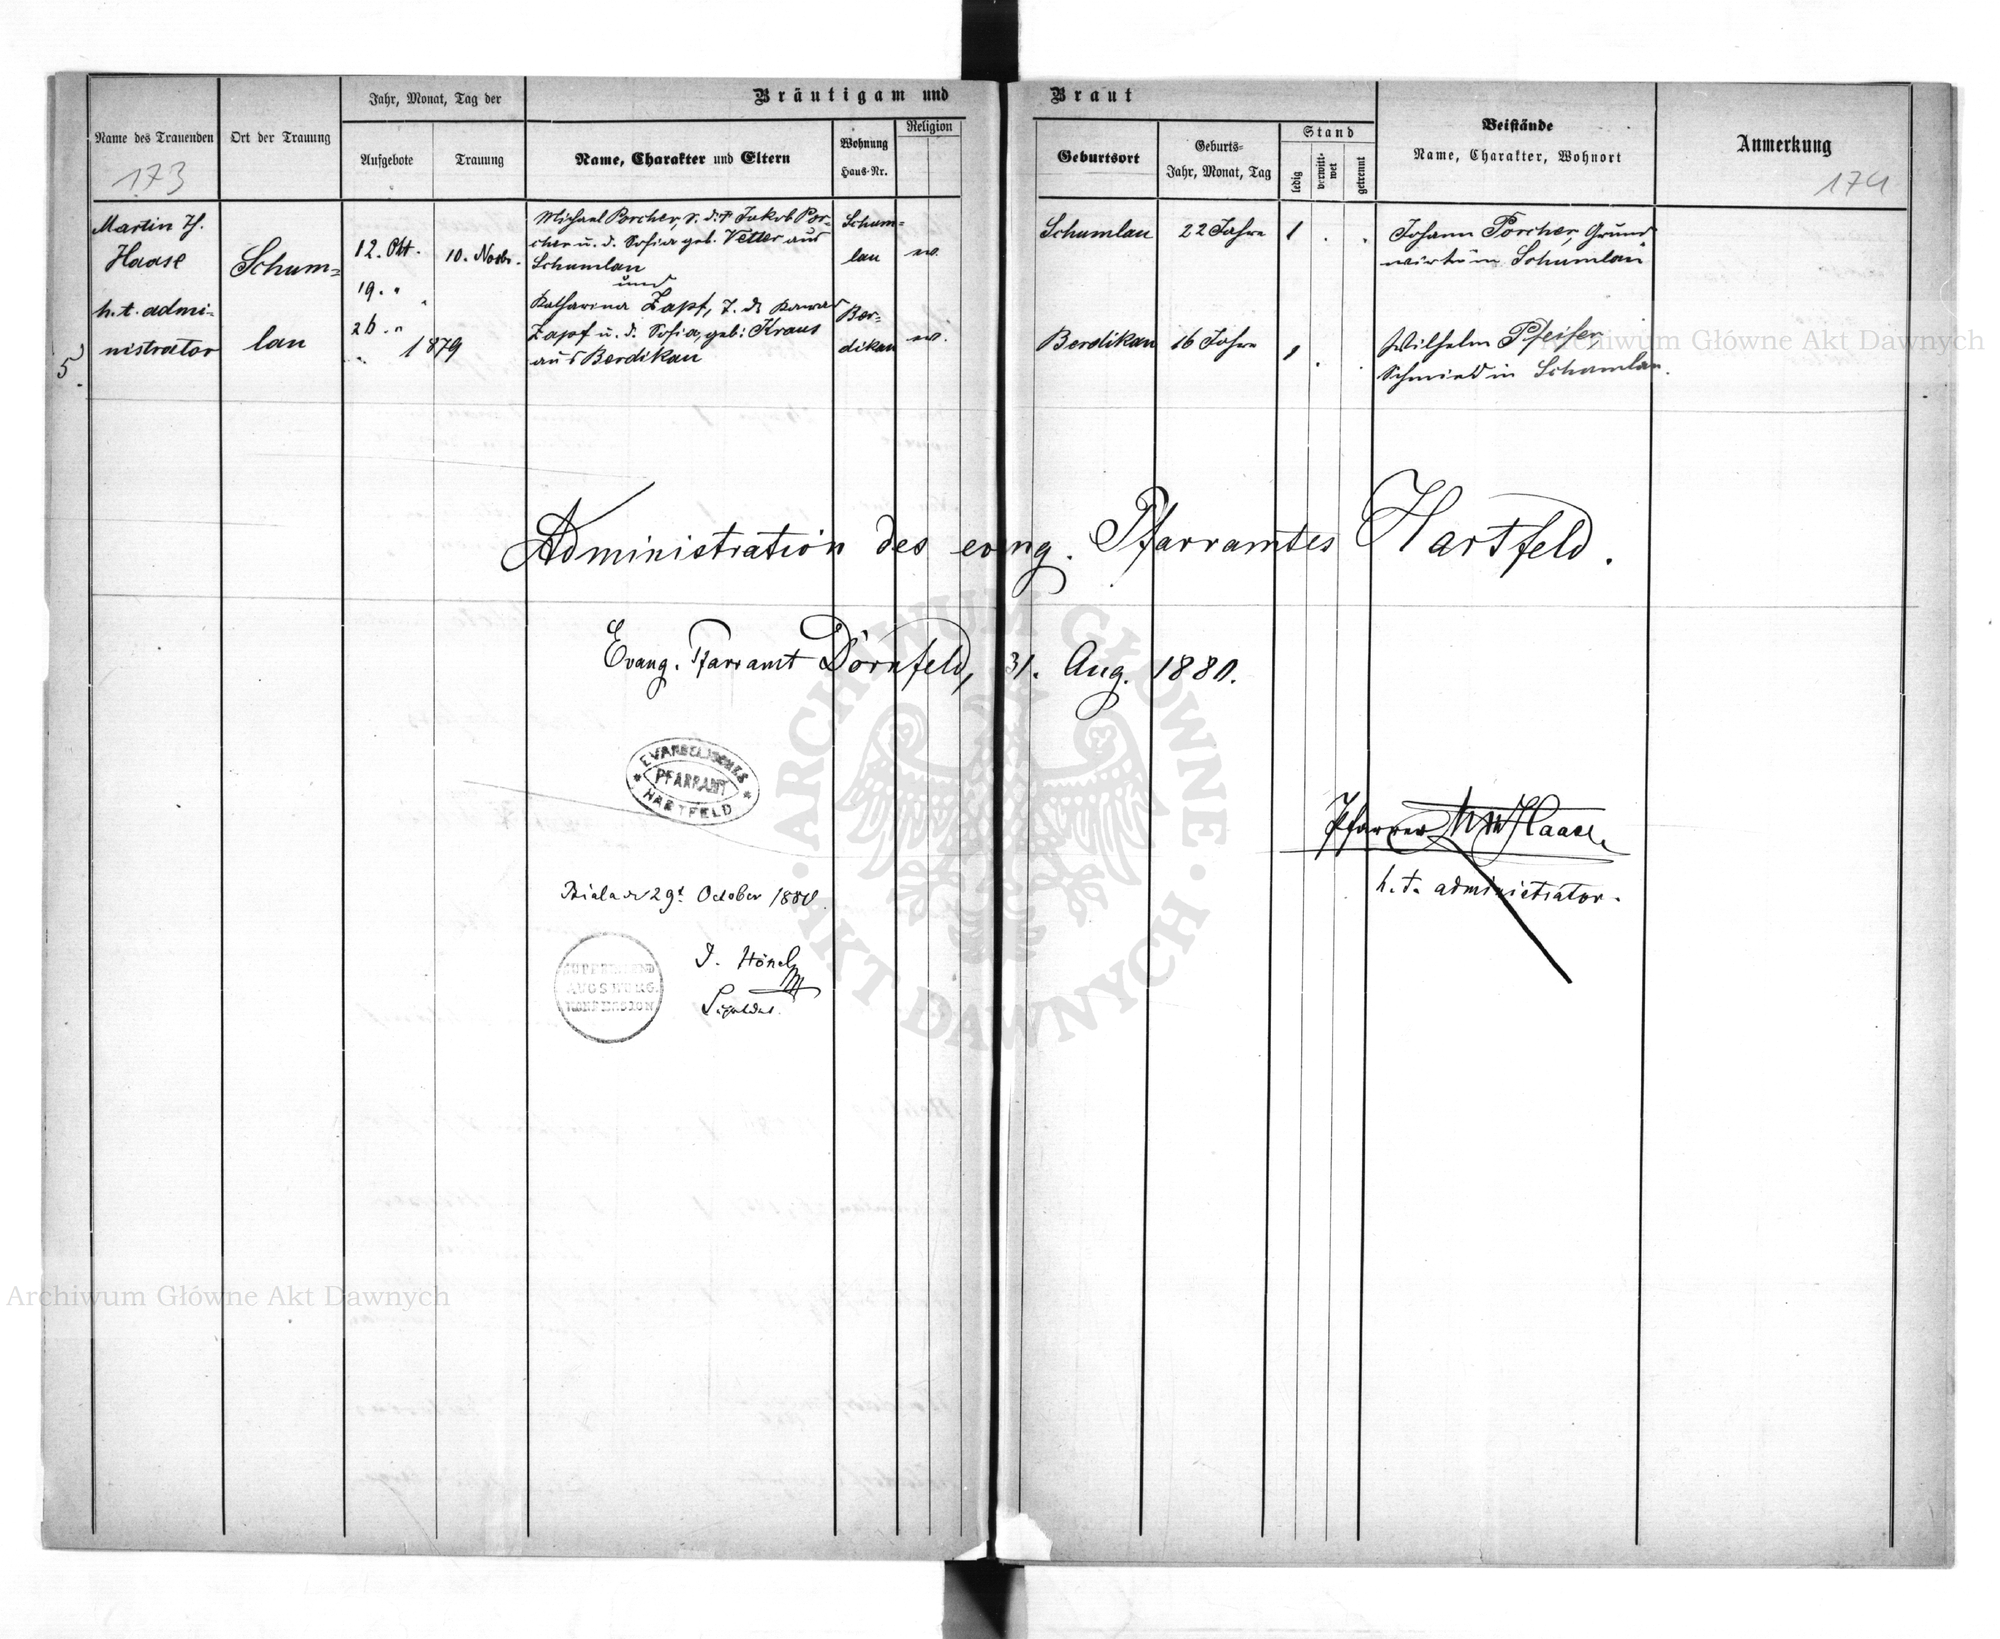 Bräutigam und Braut
Jahr, Monat, Tag der
Name des Trauenden
Ort der Trauung
Aufgebote
Trauung
Name, Charakter und Eltern
Wohnung
Haus-Nr.
Religion
Geburtsort
Geburts-
Jahr, Monat, Tag
Stand
ledig
verwitt-
wet
getrennt
Beistände
Name, Charakter, Wohnort
Anmerkung
173
174
5.
Martin H.
Haase
h. t. admi-
nistrator
Schum=
lau
12. Okt.
19. "
26. "
" 1879
10. Novbr.
Michael Porcher, S. d. † Jakob Por-
cher u. d. Sofia geb. Vetter aus
Schumlau
und
Katharina Zapf, T. d.
Zapf u. d. Sofia, geb: Kraus
aus Berdikau
Schum=
lau
Ber-
dikau
ev.
ev.
Schumlau
22 Jahre
1 . .
Berdikau
16 Jahre
1 . .
Johann Porcher, Grund-
wirt in Schumlau
Wilhelm Pfeifer,
Schmied in Schumlau.
Administration des evang. Pfarramtes Hartfeld.
Evang. Pfarramt Dornfeld, 31. Aug. 1880.
EVANGELISCHES
PFARRAMT
HARTFELD
Pfarrer Haase
h. t. administrator.
Biala d 29t October 1880.
J. Hönel
SUPERINTEND
AUGSBURG.
KONFESSION
Archiwum Główne Akt Dawnych
ARCHIWUM GŁÓWNE · AKT DAWNYCH ·
Archiwum Główne Akt Dawnych